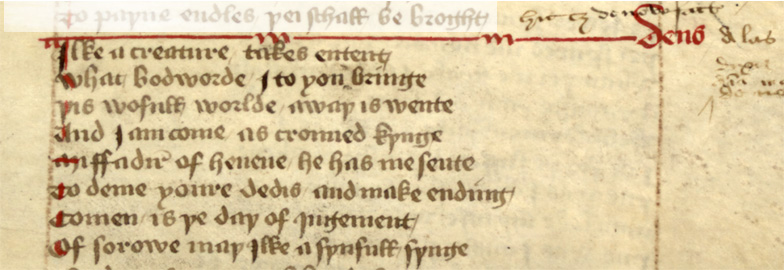 To payne endles þei schall be broght
Deus
Ilke a creature takes entent
What bodworde I to you bringe
Þis wofull worlde away is wente
And I am come as crouned kynge
Mi ffadir of heuene he has me sente
To deme youre dedis and make ending
Comen is þe day of jugement
Of sorowe may Ilke a synfull synge